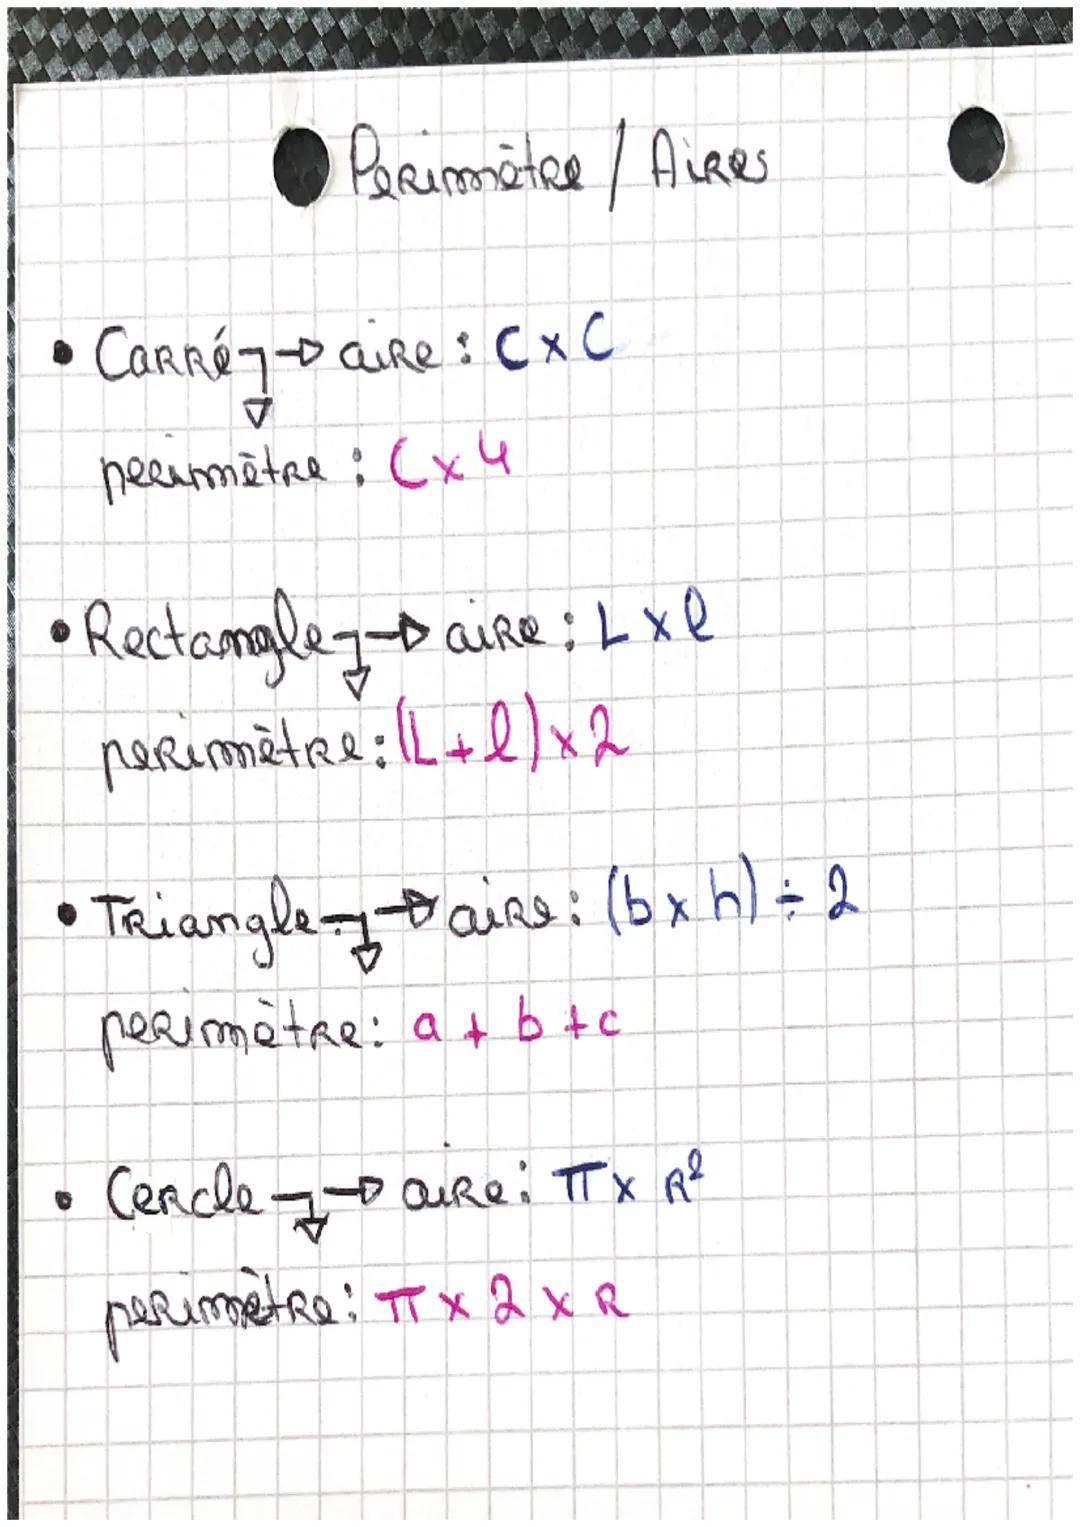 Perimètre / Aires
• Carré → aire : C x C
perimètre : C x 4
• Rectangle → aire : L x l
perimètre : (L + l) x 2
• Triangle → aire : (b x h) ÷ 2
perimètre : a + b + c
• Cercle → aire : π x R²
perimètre : π x 2 x R